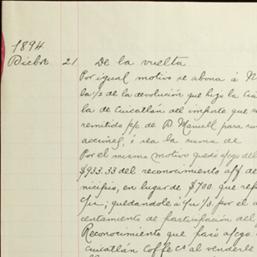 1894
Dicbre 21 De la vuelta
Por igual motivo se abona á
la 1/2 de la devolución que hizo la
la de Cuicatlán del importe que
remitido p/c de D Manuel para
accinal, ó sea la suma de
Por el mismo motivo queda a/cgo del
$933.33 del reconocimiento a/f del
nicipio, en lugar de $700 que
c/u; quedándole á f/u 1/3, por el
centamiento de participación del
Reconocimiento que pasó a/cgo
Cuicatlán Coffee Co al venderle